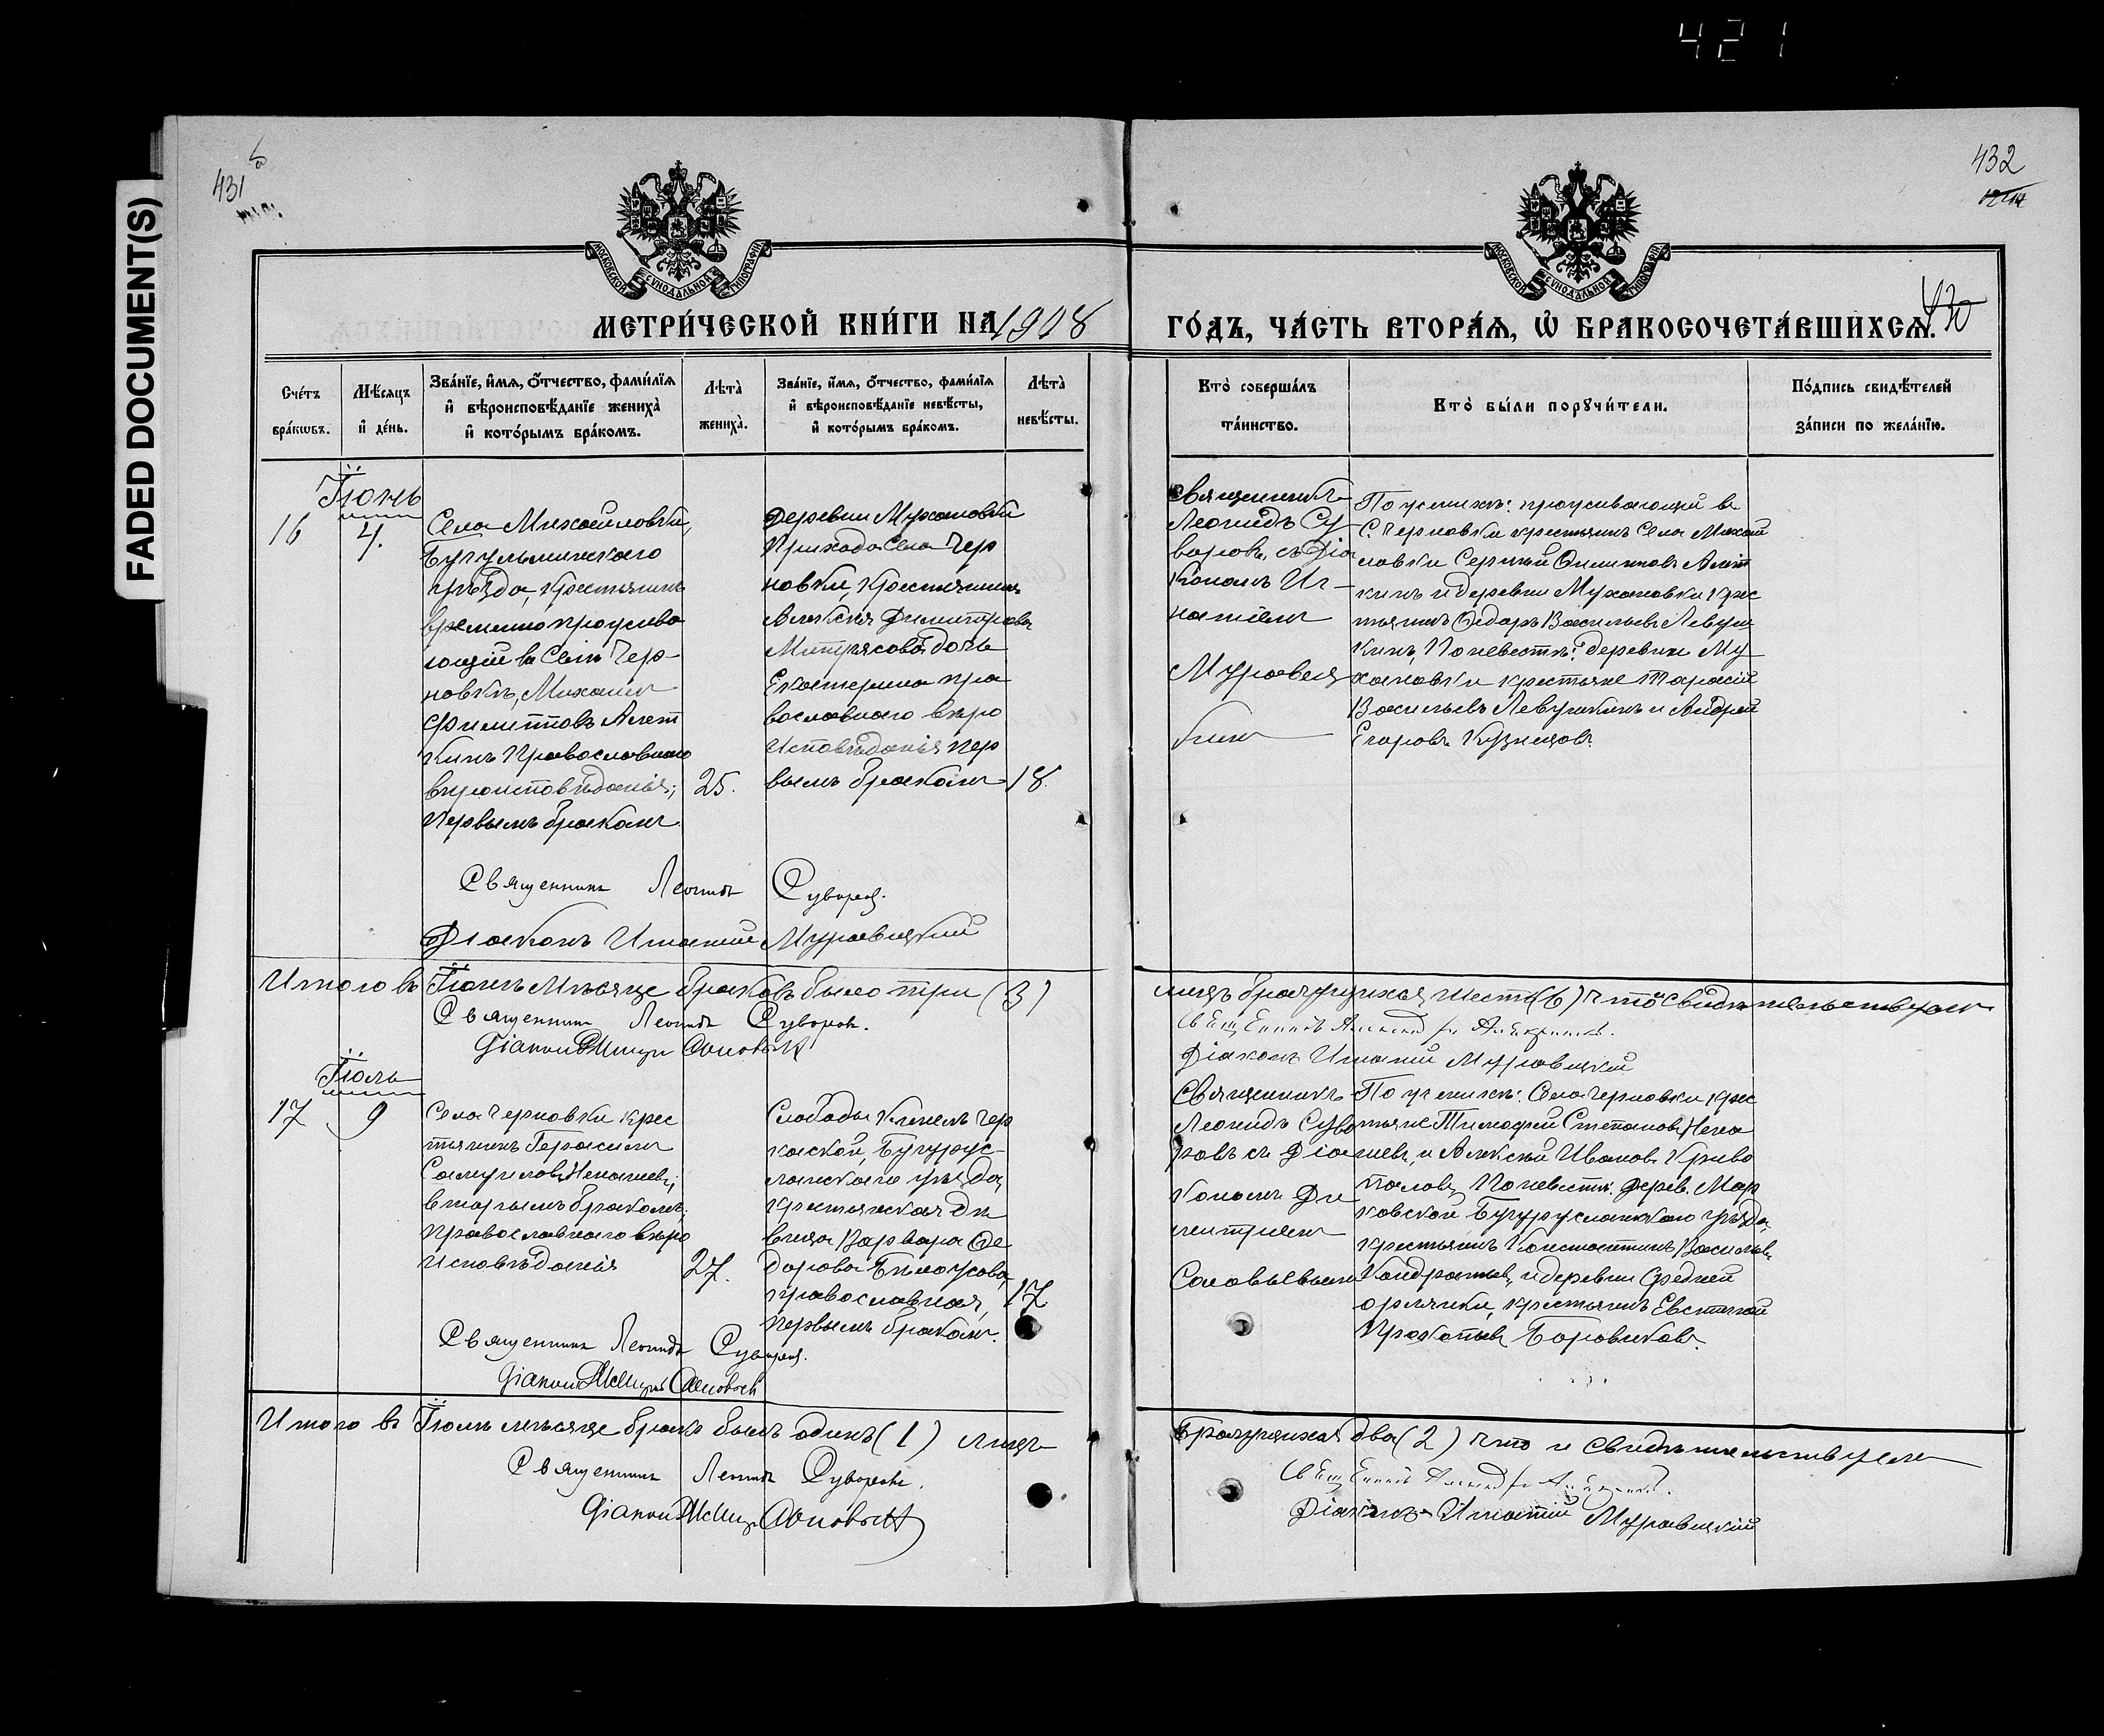 421
FADED DOCUMENT(S)
431
432
430
МОСКОВСКОЙ СѴНОДАЛЬНОЙ ТИПОГРАФІИ
МОСКОВСКОЙ СѴНОДАЛЬНОЙ ТИПОГРАФІИ
МЕТРИ́ЧЕСКОЙ КНИ́ГИ НА 1908
ГО́ДЪ, ЧА́СТЬ ВТОРА́Ѧ, Ѡ҆ БРАКОСОЧЕТА́ВШИХСѦ.
Сче́тъ
бра́кѡвъ.
Мѣ́сѧцъ
и҆ де́нь.
Зва́нїе, и҆́мѧ, ѻ҆́тчество, фами́лїѧ
и҆ вѣроисповѣ́данїе жениха̀
и҆ кото́рымъ бра́комъ.
Лѣта̀
жениха̀.
Зва́нїе, и҆́мѧ, ѻ҆́тчество, фами́лїѧ
и҆ вѣроисповѣ́данїе невѣ́сты,
и҆ кото́рымъ бра́комъ.
Лѣта̀
невѣ́сты.
Кто̀ соверша́лъ
та́инство.
Кто̀ бы́ли порꙋчи́тели.
По́дпись свидѣ́телей
за́писи по жела́нїю.
Іюнь
16
4.
Села Михайловки,
Бугульминскаго
уѣзда, крестьянинъ
временно прожива
ющій въ Селѣ Чер-
новкѣ, Михаилъ
Филипповъ Алет
кинъ Православнаго
вѣроисповѣданія;
Первымъ бракомъ.
25.
Деревни Мухановки
Прихода Села Чер
новки, крестьянина
Алексѣя Димитріева
Митрясова дочь
Екатерина пра
вославнаго вѣро
исповѣданія пер
вымъ бракомъ
18.
Священникъ
Леонидъ Су
воровъ, съ Діа
кономъ Иг-
натіемъ
Муравиц
кимъ
По женихѣ: проживающій въ
С. Черновки крестьянинъ Села Михай
ловки Сергѣй Филипповъ Алет
кинъ и деревни Мухановки крес
тьянинъ Ѳедоръ Васильевъ Левуш
кинъ, По невестѣ: деревни Му
хановки крестьяне Тарасій
Васильевъ Левушкинъ и Андрей
Егоровъ Кузнецовъ.
Священникъ Леонидъ Суворовъ.
Діаконъ Игнатій Муравицкій
Итого въ Іюнѣ Мѣсяце браковъ было три (3)
лицъ брачущихся шесть (6) что и свидѣтельствуемъ
Священникъ Леонидъ Суворовъ.
Діаконъ Димитр Соловьев
Священникъ
Діаконъ Игнатій Муравицкій
Іюль
17
9
Села Черновки крес
тьянинъ Герасимъ
Самуиловъ Ненашевъ;
вторымъ бракомъ;
Православнаго вѣро
исповѣданія
27.
Слободы Кинель Чер
касской, Бугурус-
ланскаго уѣзда,
крестьянская дѣ
вица Варвара Ѳе
дорова Бѣлоусова,
православная,
первымъ бракомъ.
17
Священникъ
Леонидъ Суво
ровъ съ Діа
кономъ Ди
митріемъ
Соловьевымъ
По женихѣ: Села Черновки крес
тьяне Тимофей Степановъ Нена
шевъ, и Алексѣй Ивановъ Криво
паловъ, По невестѣ: Дерев. Мар
ковской Бугурусланскаго уѣзда,
крестьянинъ Константинъ Васильевъ
Кондратьевъ, и деревни Средней
орлянки, крестьянинъ Евстигней
Прокопьевъ Боровиковъ.
Священникъ Леонидъ Суворовъ.
Діаконъ Димитр Соловьев
Итого въ Іюлѣ мѣсяце бракъ былъ одинъ (1) лицъ
Брачущихся два (2) что и свидѣтельствуемъ
Священникъ Леонидъ Суворовъ.
Діаконъ Димитр Соловьев
Священникъ
Діаконъ Игнатій Муравицкій